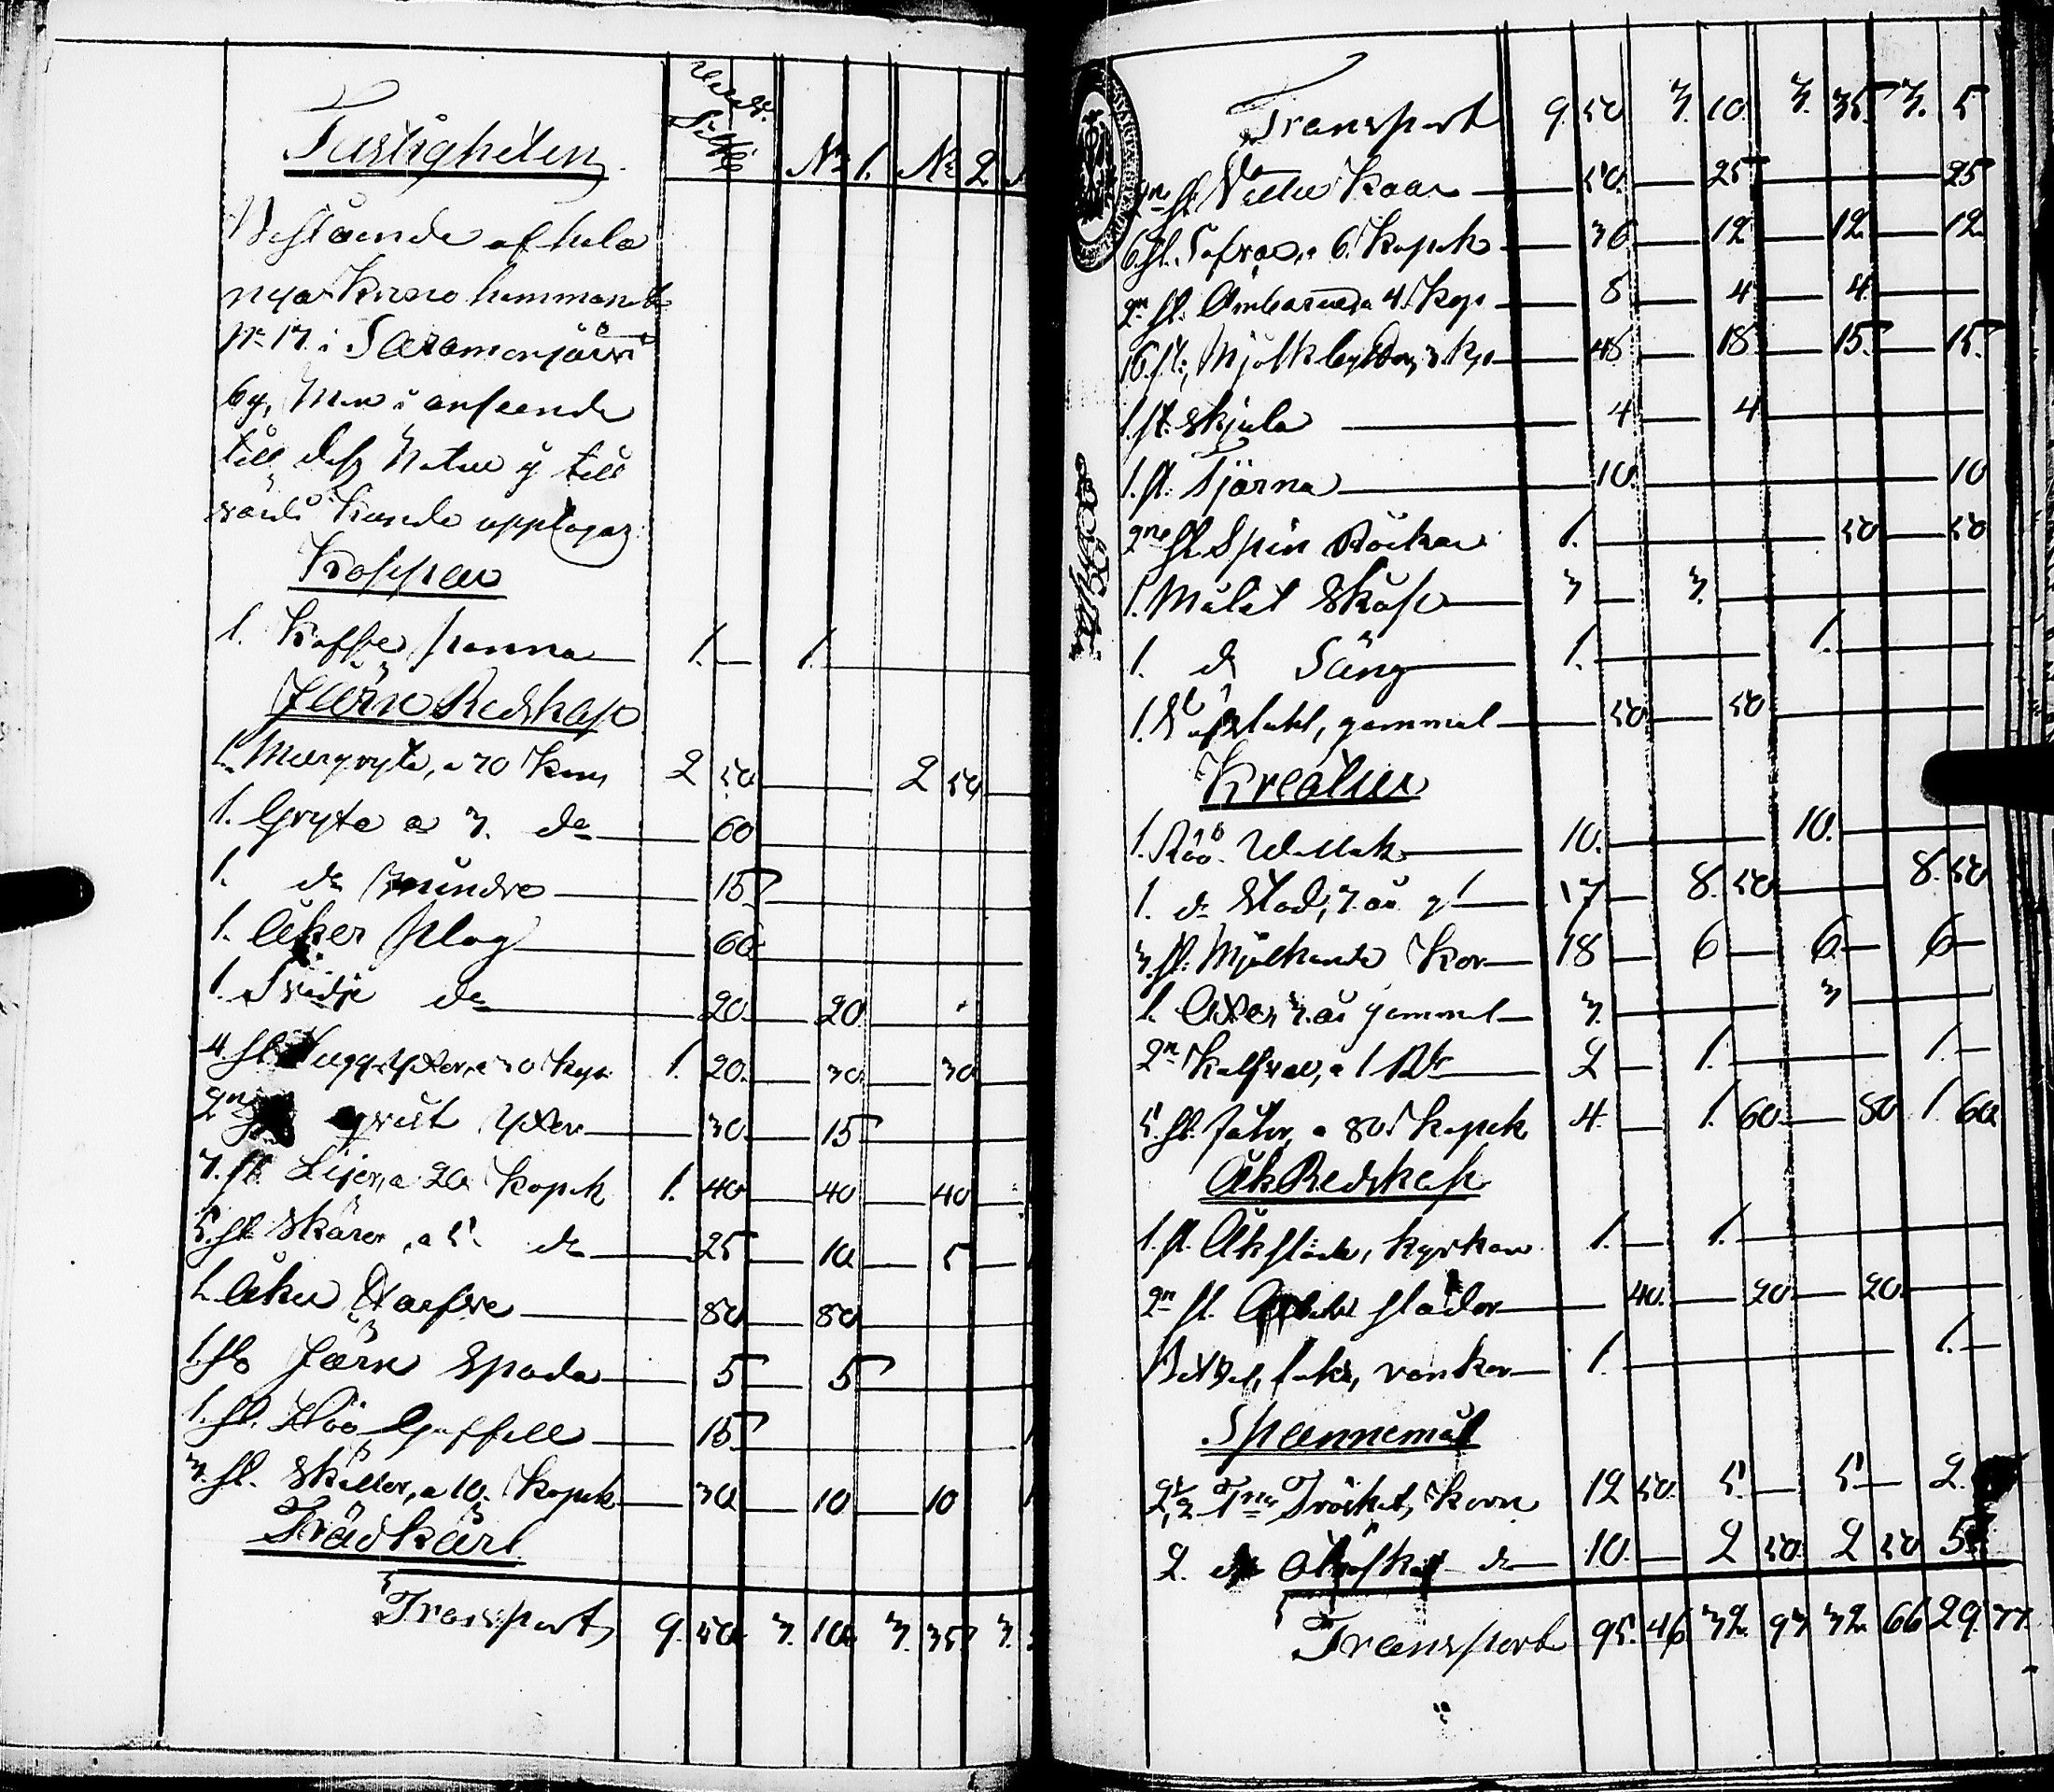 Fastigheten Värde Silfver N: 1. N: 2
Bestående af hela
nya Krono hemmanet
N: 17. i Saramonjärvi
by, Men i anseende
till dess Natur ej till
värde kunde upptagas
Koppar
1. Kaffe panna 1. — 1.
Järn Redskap
1. Murgryta, a 20 Kann 2 50 2 50
1. Gryta a 3. do 60
1. do mindre 15
1. Åker Plog 60
1. Svidje do 20 20
4. st. Hugg Yxor, a 30 Kop. 1. 20 30 30
2ne st qvist Yxor 30 15
7. st Lijor, a 20 Kopek 1. 40 40 40
5. st Skäror, a 5. do 25 10 5
1. Åker Harfve 80 80
1. st Järn Spada 5 5
1. st. Höö Gaffell 15
3. st. Skällor, a 10. Kopek 30 10 10
Trädkäril
Transport 9. 50 3. 10 3. 35 3.
Transport 9. 50 3. 10. 3. 35 3. 5
2ne st. Kaar 50. 25 25
6. st. Säfrar, a 6. Kopek 36 12 12 12
2n st. Ämbaren a 4. Kop 8 4 4
16. st: Mjölkbyttor, 3 Kp 48 18 15 15
1. st. Skjula 4 4
1. st. Tjärna 10. 10
2ne st. Spin Råckar 1. 50 50
1. Målat Skåp 3 3.
1. do Säng 1. 1.
1. gammal 50 50
Kreatur
1. Röö Wallak 10. 10.
1. do Stod, 7. år gl 17 8. 50 8. 50
3. st. Mjölkande Kor 18 6 6 6
1. Oxe 3. år gammal 3. 3
2n Kalfvar, a 1 Rbl 2 1. 1.
5. st. Fåhr, a 80 Kopek 4. 1. 60 80 1. 60
Åk Redskap
1. st. Åksläde, Kyrkan 1. 1.
2n st. slädor 40. 20 20
1. 1.
Spannemål
2 1/2 Tnr Tröskat Korn 12 50. 5. 5 2.
2. do Otröskat do 10. 2 50 2 50 5
Transport 95. 46 32. 93 32. 66 29. 77.